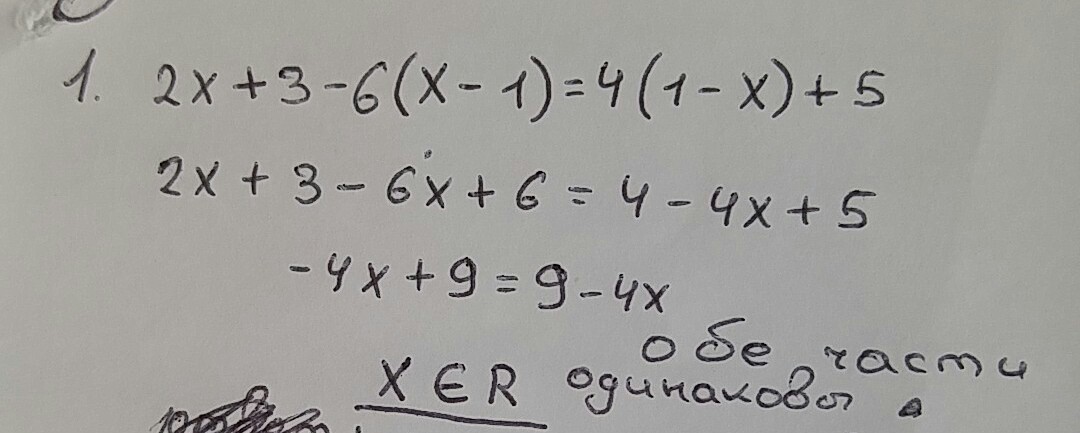 1. 2x+3-6(x-1)=4(1-x)+5
2x+3-6x+6=4-4x+5
-4x+9=9-4x
x∈R обе части
одинаковы.